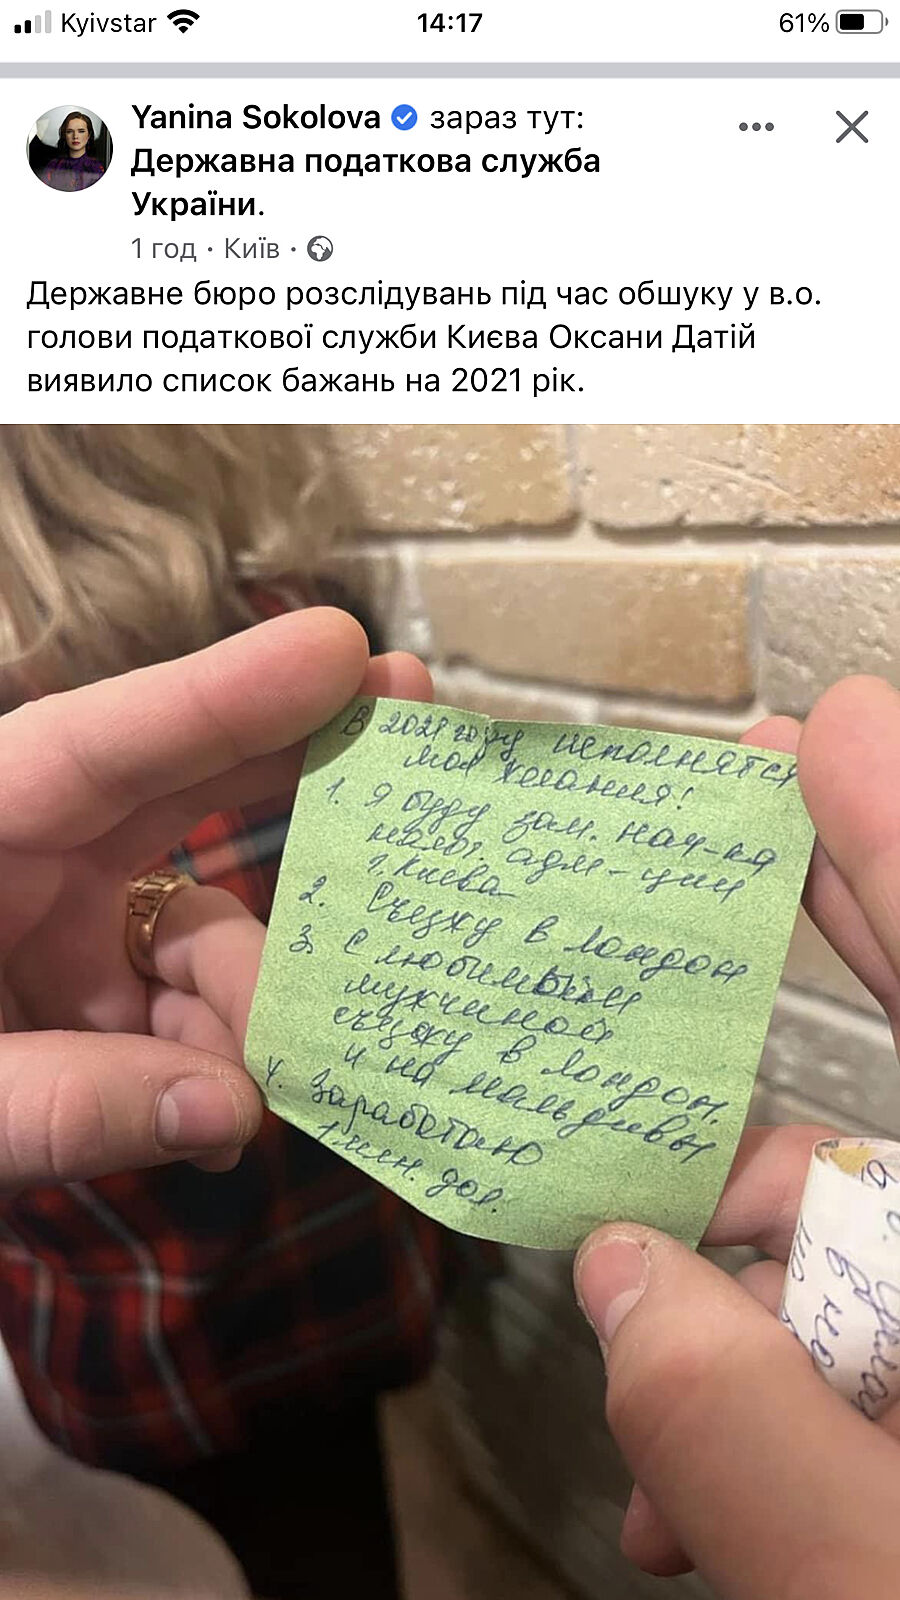 Kyivstar 14:17 61%
Yanina Sokolova зараз тут:
Державна податкова служба
України.
1 год · Київ ·
Державне бюро розслідувань під час обшуку у в.о.
голови податкової служби Києва Оксани Датій
виявило список бажань на 2021 рік.
В 2021 году исполнятся
мои желания!
1. Я буду зам. нач-ка
налог. адм-ции
г. Киева
2. Съезжу в Лондон
3. С любимым
мужчиной
съезжу в Лондон,
и на Мальдивы
4. Заработаю
1 млн. дол.